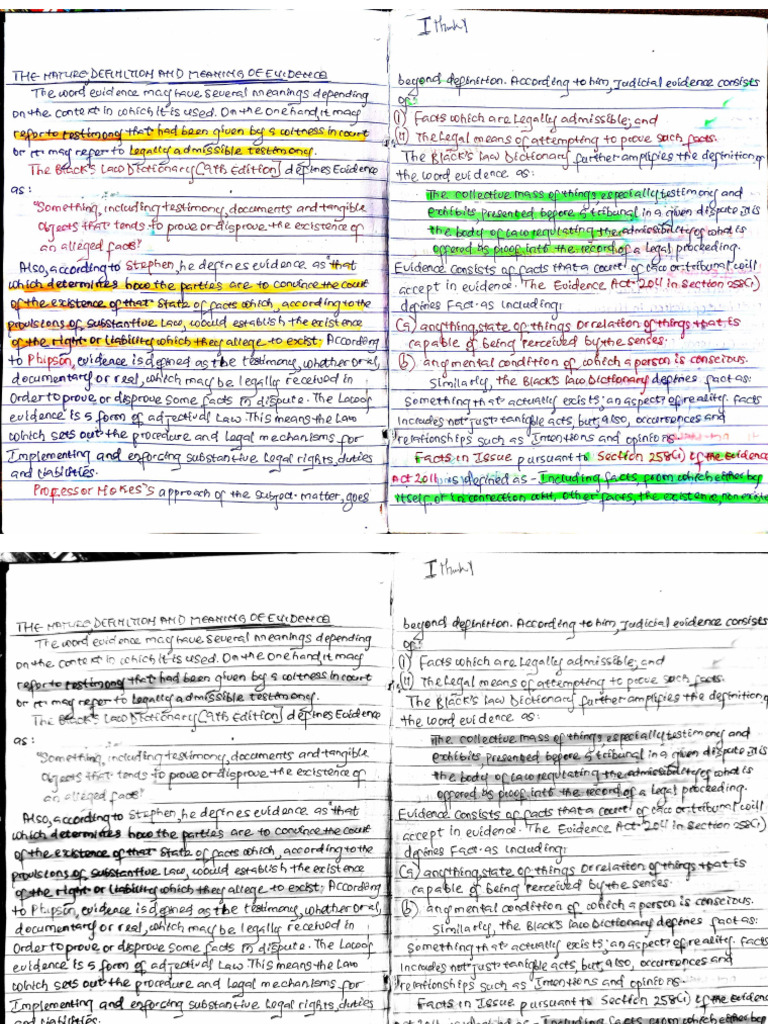 I think
THE NATURE, DEFINITION AND MEANING OF EVIDENCE
The word evidence may have several meanings depending
on the context in which it is used. On the one hand, it may
refer to testimony that had been given by a witness in court
or it may refer to legally admissible testimony.
The Black's Law Dictionary [9th Edition] defines Evidence
as:
"Something, including testimony, documents and tangible
objects that tends to prove or disprove the existence of
an alleged fact."
Also, according to Stephen, he defines evidence as "that
which determines how the parties are to convince the court
of the existence of that state of facts which, according to the
provisions of substantive law, would establish the existence
of the right or liability which they allege to exist. According
to Phipson, evidence is defined as the testimony, whether oral,
documentary or real, which may be legally received in
Order to prove or disprove some facts in dispute. The Law of
evidence is a form of adjectival Law. This means the Law
which sets out the procedure and Legal mechanisms for
Implementing and enforcing substantive Legal rights, duties
and liabilities.
Professor Nokes's approach of the subject-matter, goes
beyond definition. According to him, Judicial evidence consists
of:
(i) Facts which are Legally admissible; and
(ii) The Legal means of attempting to prove such facts.
The Black's Law Dictionary further amplifies the definition of
the word evidence as:
The collective mass of things, especially testimony and
exhibits presented before a tribunal in a given dispute it is
the body of law regulating the admissibility of what is
offered as proof into the record of a legal proceeding.
Evidence consists of facts that a court of law or tribunal will
accept in evidence. The Evidence Act 2011 in Section 258(i)
defines Fact as including:
(a) anything, state of things or relation of things that is
capable of being perceived by the senses.
(b) any mental condition of which a person is conscious.
Similarly, the Black's law Dictionary defines fact as:
Something that actually exists; an aspect of reality. Facts
includes not just tangible acts, but, also, occurrences and
relationships such as Intentions and opinions
Facts in Issue pursuant to Section 258(i) of the Evidence
Act 2011 is defined as - Including facts, from which either by
itself or in connection with, other facts, the existence, non exist
I think
THE NATURE, DEFINITION AND MEANING OF EVIDENCE
The word evidence may have several meanings depending
on the context in which it is used. On the one hand, it may
refer to testimony that had been given by a witness in court
or it may refer to legally admissible testimony.
The Black's Law Dictionary [9th Edition] defines Evidence
as:
"Something, including testimony, documents and tangible
objects that tends to prove or disprove the existence of
an alleged fact."
Also, according to Stephen, he defines evidence as "that
which determines how the parties are to convince the court
of the existence of that state of facts which, according to the
provisions of substantive law, would establish the existence
of the right or liability which they allege to exist. According
to Phipson, evidence is defined as the testimony, whether oral,
documentary or real, which may be legally received in
Order to prove or disprove some facts in dispute. The Law of
evidence is a form of adjectival Law. This means the Law
which sets out the procedure and Legal mechanisms for
Implementing and enforcing substantive Legal rights, duties
and liabilities.
beyond definition. According to him, Judicial evidence consists
of:
(i) Facts which are Legally admissible; and
(ii) The Legal means of attempting to prove such facts.
The Black's Law Dictionary further amplifies the definition of
the word evidence as:
The collective mass of things especially testimony and
exhibits presented before a tribunal in a given dispute it is
the body of law regulating the admissibility of what is
offered as proof into the record of a legal proceeding.
Evidence consists of facts that a court of law or tribunal will
accept in evidence. The Evidence Act 2011 in Section 258(i)
defines Fact as including:
(a) anything, state of things or relation of things that is
capable of being perceived by the senses.
(b) any mental condition of which a person is conscious.
Similarly, the Black's law Dictionary defines fact as:
Something that actually exists; an aspect of reality. Facts
includes not just tangible acts, but, also, occurrences and
relationships such as Intentions and opinions.
Facts in Issue pursuant to Section 258(i) of the Evidence
Act 2011 is defined as - Including facts, from which either by